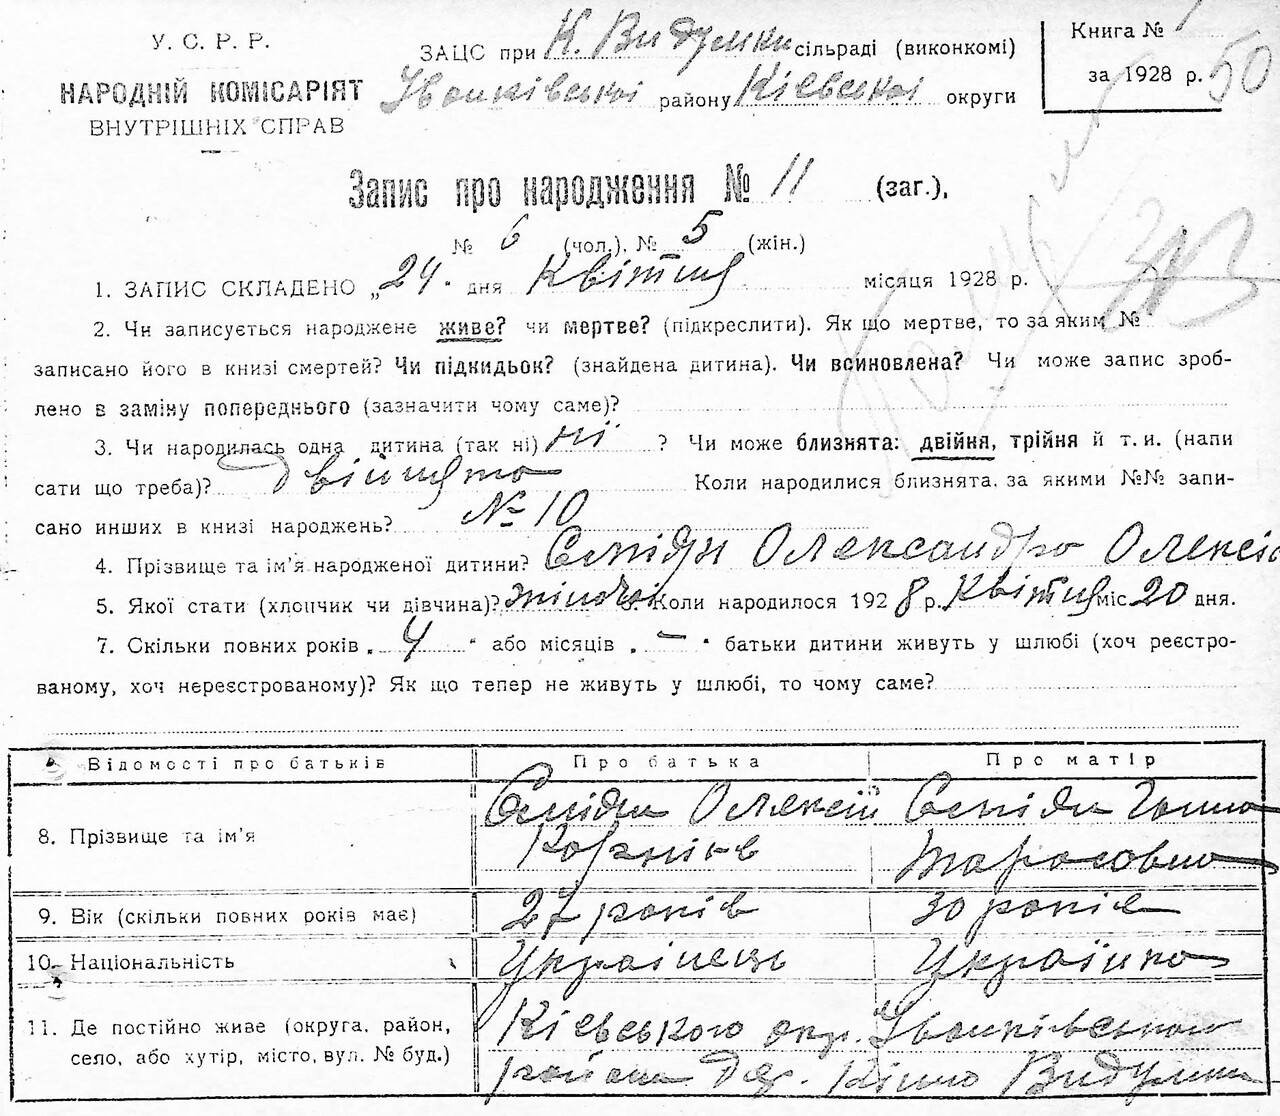 У. С. Р. Р.
НАРОДНІЙ КОМІСАРІЯТ
ВНУТРІШНІХ СПРАВ
ЗАЦС при К. Видумки сільраді (виконкомі)
Іванківської району Кіевської округи
Книга № 1
за 1928 р. 50
Запис про народження № 11 (заг.),
№ 6 (чол.), № 5 (жін.)
1. ЗАПИС СКЛАДЕНО „24" дня Квітня місяця 1928 р.
2. Чи записується народжене живе? чи мертве? (підкреслити). Як що мертве, то за яким №
записано його в книзі смертей? Чи підкидьок? (знайдена дитина). Чи всиновлена? Чи може запис зроб-
лено в заміну попереднього (зазначити чому саме)?
3. Чи народилась одна дитина (так ні) ні ? Чи може близнята: двійня, трійня й т. и. (напи
сати що треба)? двійнята Коли народилися близнята, за якими №№ запи-
сано инших в книзі народжень? № 10
4. Прізвище та ім'я народженої дитини? Олександра
5. Якої стати (хлопчик чи дівчина)? жіночоі Коли народилося 1928 р. Квітня міс 20 дня.
7. Скільки повних років „ 4 " або місяців „ — " батьки дитини живуть у шлюбі (хоч реєстро-
ваному, хоч нереєстрованому)? Як що тепер не живуть у шлюбі, то чому саме?
Відомості про батьків Про батька Про матір
8. Прізвище та ім'я Олексій Ганна
Тарасовна
9. Вік (скільки повних років має) 27 років 30 років
10. Національність Українець Українка
11. Де постійно живе (округа, район, Кіевського окр. Іванківського
село, або хутір, місто, вул. № буд.) района Видумка